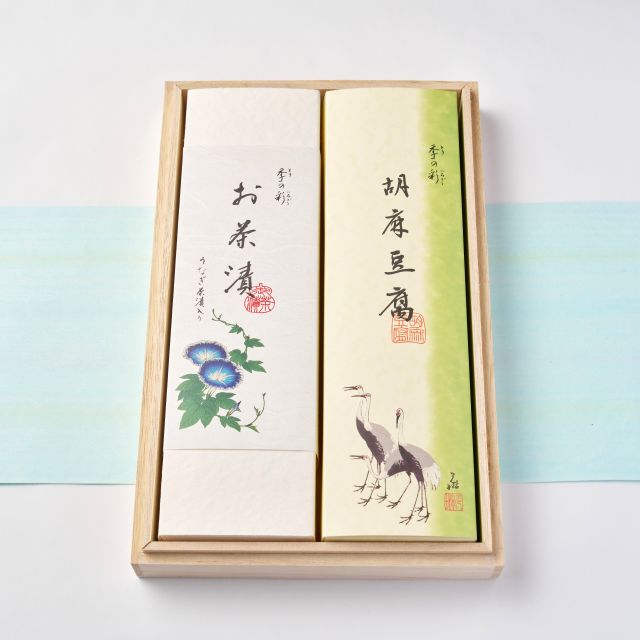 季の彩
胡麻豆腐
季の彩
お茶漬
うなぎ茶漬入り